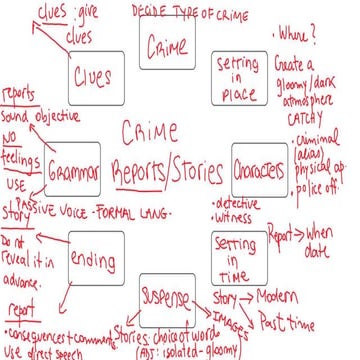 CLUES : give
clues
DECIDE TYPE OF CRIME
CRIME
Clues
Setting
in
PLACE
. Where?
Create a
gloomy/dark
atmosphere
CATCHY
reports
Sound objective
NO
feelings
USE
PASSIVE VOICE - FORMAL LANG.
Grammar
CRIME
REPORTS/STORIES
Characters
. criminal
(alias)
physical ap.
. police off.
. detective
. witness
story
Do not
reveal it in
advance.
ending
report
. consequences + comment
Use direct speech
SUSPENSE
Stories: choice of words
(ADJ: isolated-gloomy)
IMAGES
Setting
in
TIME
Report → When
date
Story → Modern
Past time